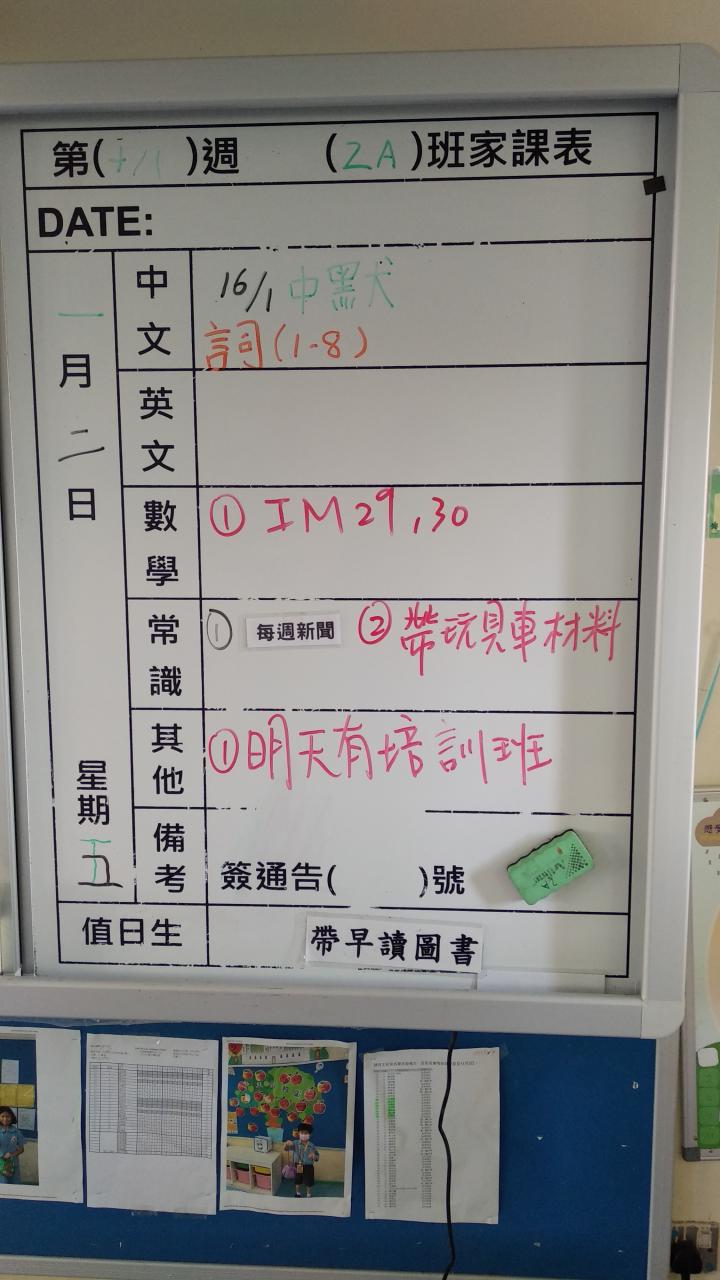 第(十八)週 (2A)班家課表
DATE:
一月二日
星期五
中文
16/1 中默犬
詞(1-8)
英文
數學
① IM29,30
常識
① 每週新聞 ② 帶玩具車材料
其他
①明天有培訓班
備考
簽通告( )號
值日生
帶早讀圖書